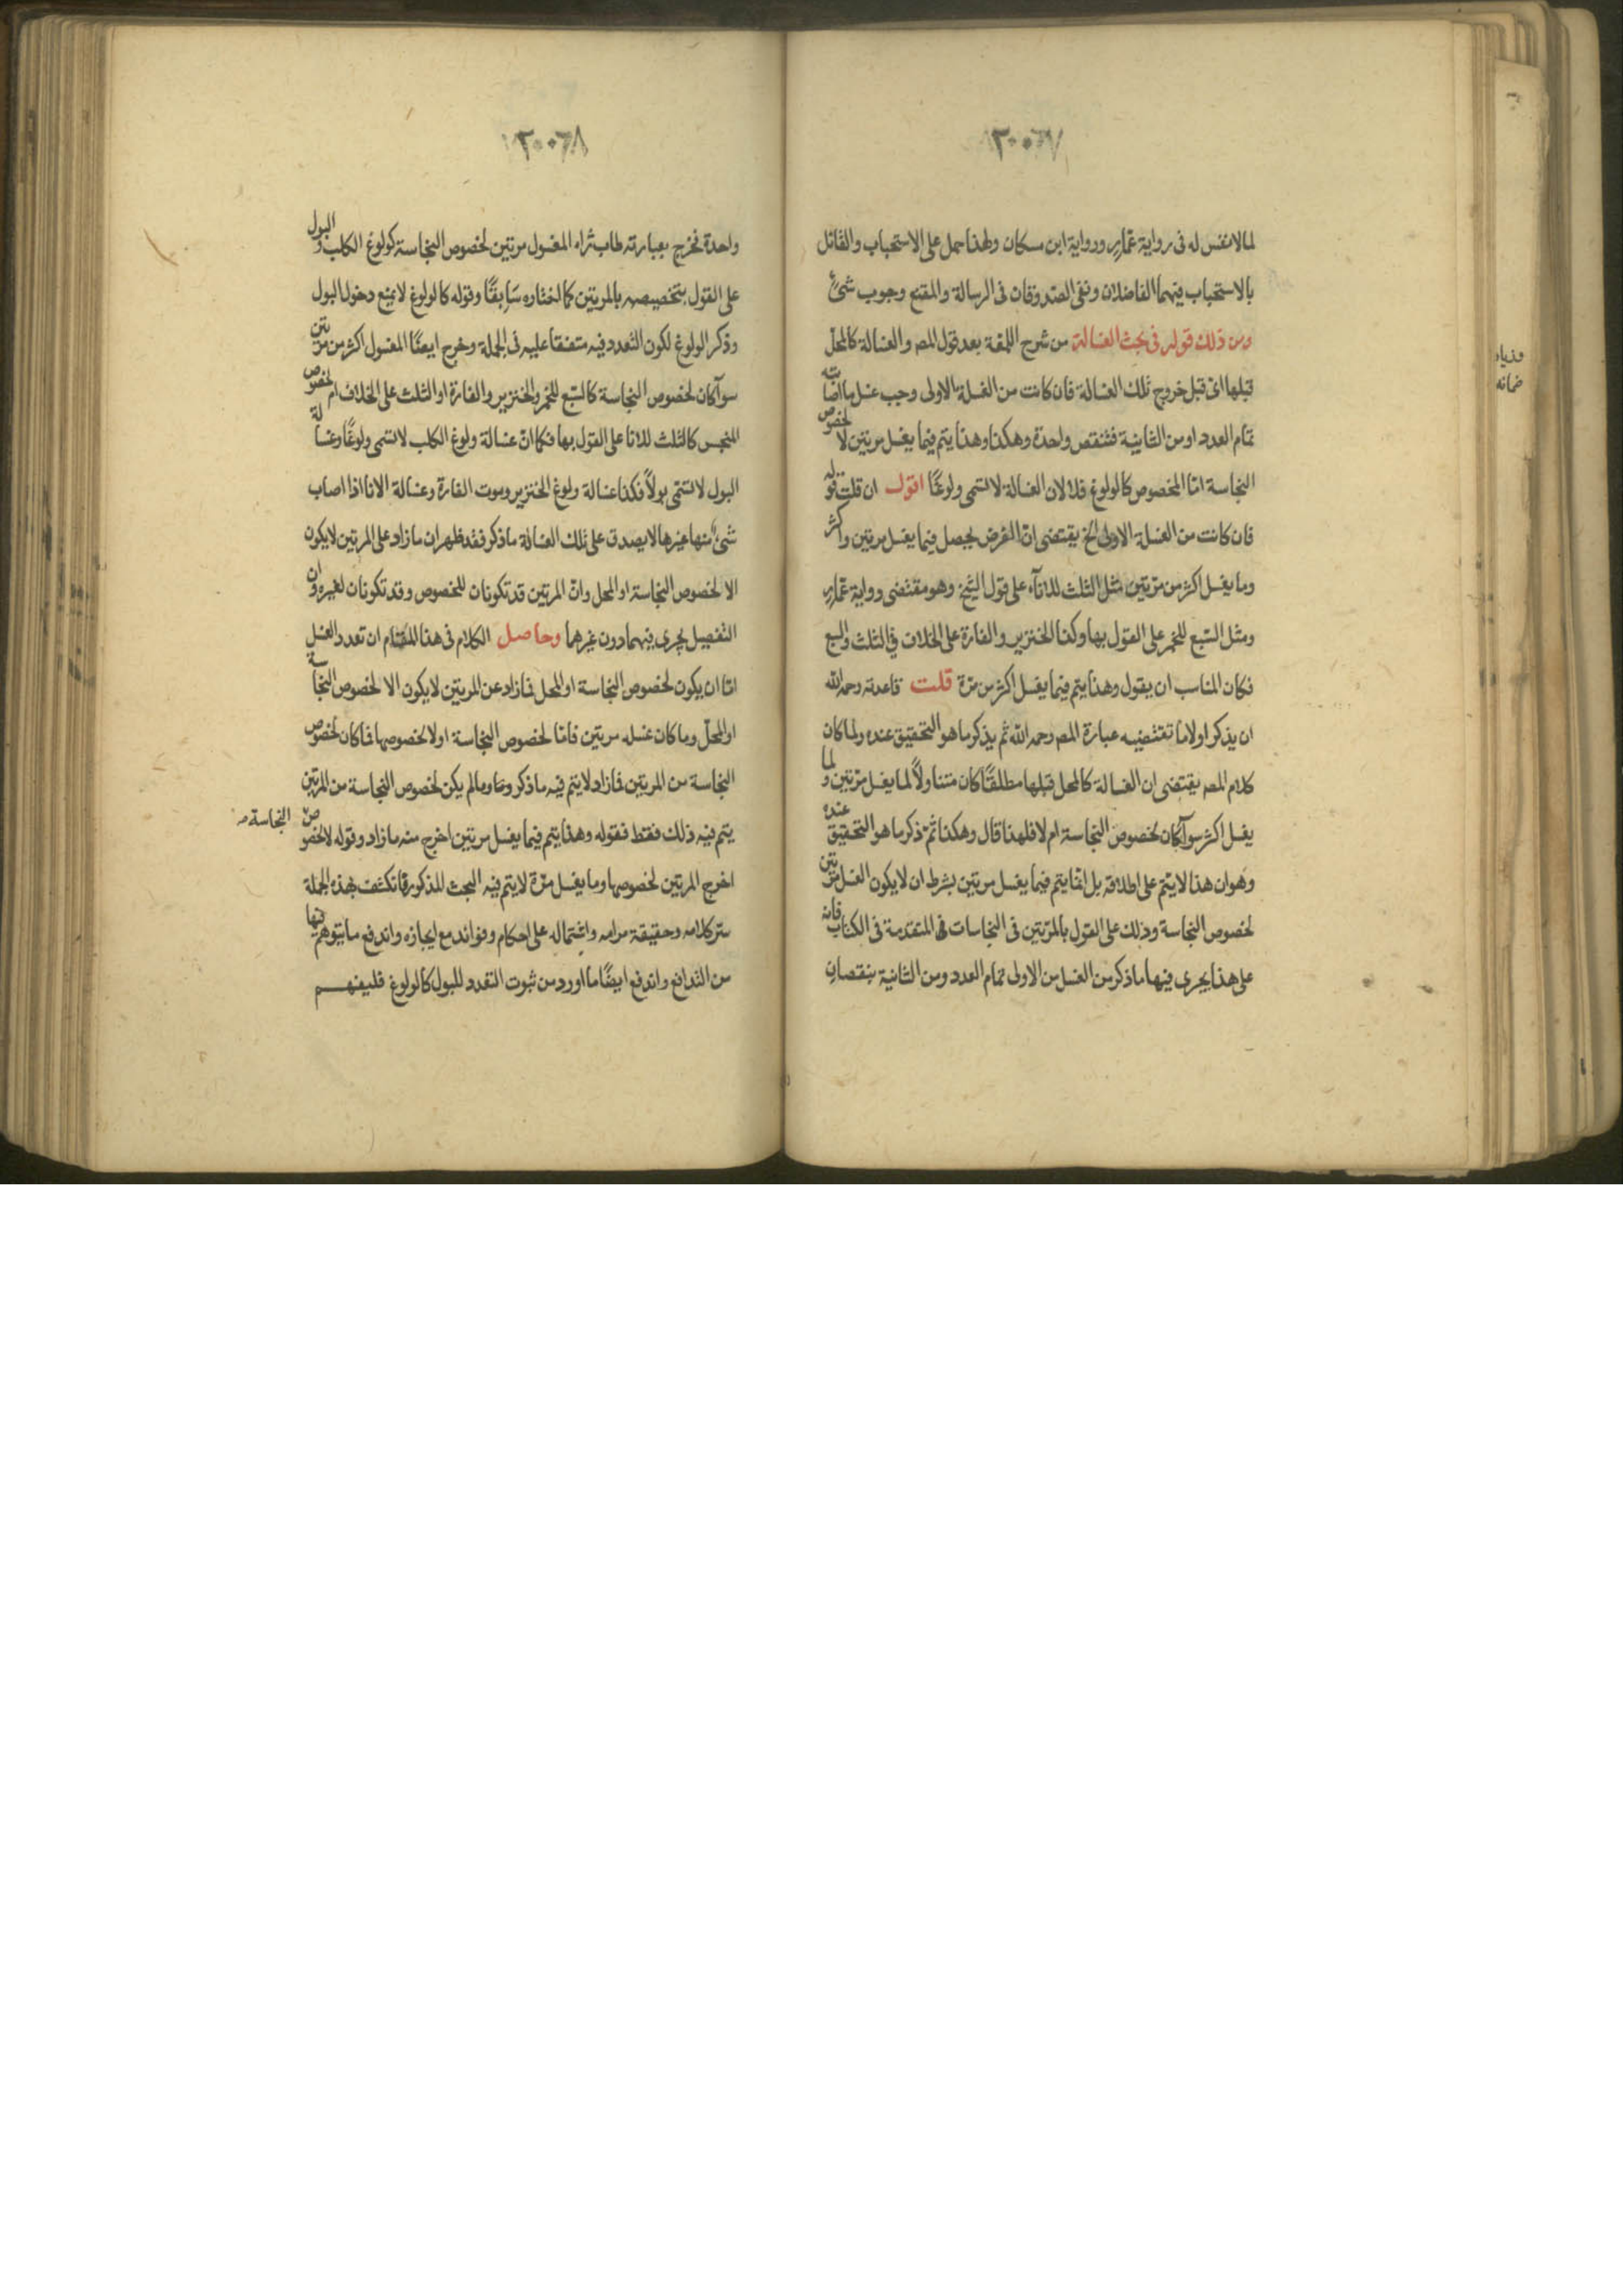 ٢٠٠٦٧
لما لا نفس له فى رواية عمار ورواية ابن مسكان ولهذا حمل على الاستحباب والقائل
بالاستحباب فيهما الفاضلان ونفى الصدوقان فى الرسالة والمقنع وجوب شئ
ومن ذلك قوله فى بحث الغسالة من شرح اللمعة بعد قول المصـ والغسالة كالمحل
قبلها اى قبل خروج تلك الغسالة فان كانت من الغسلة الاولى وجب غسل ما اصابته
تمام العدد او من الثانية فتنقص واحدة وهكذا وهذا يتم فيما يغسل مرتين لا لخصوص
النجاسة اما المخصوص كالولوغ فلا لان الغسالة لا تسمى ولوغًا اقول ان قلت قوله
فان كانت من الغسلة الاولى الخ يقتضى ان الفرض يحصل فيما يغسل مرتين واكثر
وما يغسل اكثر من مرتين مثل الثلث للاناء على قول الشيخ وهو مقتضى رواية عمار
ومثل السبع للخمر على القول بها وكذا الخنزير والفارة على الخلاف فى الثلث والسبع
فكان المناسب ان يقول وهذا يتم فيما يغسل اكثر من مرة قلت قاعدته رحمه الله
ان يذكر اولا ما تقتضيه عبارة المصـ رحمه الله ثم يذكر ما هو التحقيق عنده ولما كان
كلام المصـ يقتضى ان الغسالة كالمحل قبلها مطلقًا كان متناولًا لما يغسل مرتين ولما
يغسل اكثر سواء كان لخصوص النجاسة ام لا فلهذا قال وهكذا ثم ذكر ما هو التحقيق عنده
وهو ان هذا لا يتم على اطلاقه بل انما يتم فيما يغسل مرتين بشرط ان لا يكون الغسل مرتين
لخصوص النجاسة وذلك على القول بالمرتين فى النجاسات المتقدمة فى الكتاب فانه
على هذا يجرى فيها ما ذكر من الغسل من الاولى تمام العدد ومن الثانية بنقصان
٢٠٠٦٨
واحدة فخرج بعبارته طاب ثراه المغسول مرتين لخصوص النجاسة كولوغ الكلب والبول
على القول بتخصيصه بالمرتين كما اختاره سابقًا وقوله كالولوغ لا يمنع دخول البول
وذكر الولوغ لكون التعدد فيه متفقا عليه فى الجملة وخرج ايضًا المغسول اكثر من مرتين
سواء كان لخصوص النجاسة كالسبع للخمر والخنزير والفارة او الثلث على الخلاف ام لخصوص
المنجس كالثلث للانا على القول بها فكما ان غسالة ولوغ الكلب لا تسمى ولوغًا وغسالة
البول لا تسمى بولًا فكذا غسالة ولوغ الخنزير وموت الفارة وغسالة الانا اذا اصاب
شئ منها غيرها لا يصدق على تلك الغسالة ما ذكر فقد ظهر ان ما زاد على المرتين لا يكون
الا لخصوص النجاسة او المحل وان المرتين قد تكونان للخصوص وقد تكونان لغيره وان
التفصيل يجرى فيهما دون غيرهما وحاصل الكلام فى هذا المقام ان تعدد الغسل
اما ان يكون لخصوص النجاسة او المحل فما زاد عن المرتين لا يكون الا لخصوص النجاسة
او المحل وما كان غسله مرتين فاما لخصوص النجاسة او لا لخصوصها فما كان لخصوص
النجاسة من المرتين فما زاد لا يتم فيه ما ذكر وما لم يكن لخصوص النجاسة من المرتين
يتم فيه ذلك فقط فقوله وهذا يتم فيما يغسل مرتين اخرج منه ما زاد وقوله لا لخصوص
النجاسة صـ
اخرج المرتين لخصوصها وما يغسل مرة لا يتم فيه البحث المذكور فانكشف بهذه الجملة
ستر كلامه وحقيقة مرامه واشتماله على احكام وفوائد مع ايجازه واندفع ما يتوهم فيها
من التدافع واندفع ايضًا ما اورد من ثبوت التعدد للبول كالولوغ فليفهم